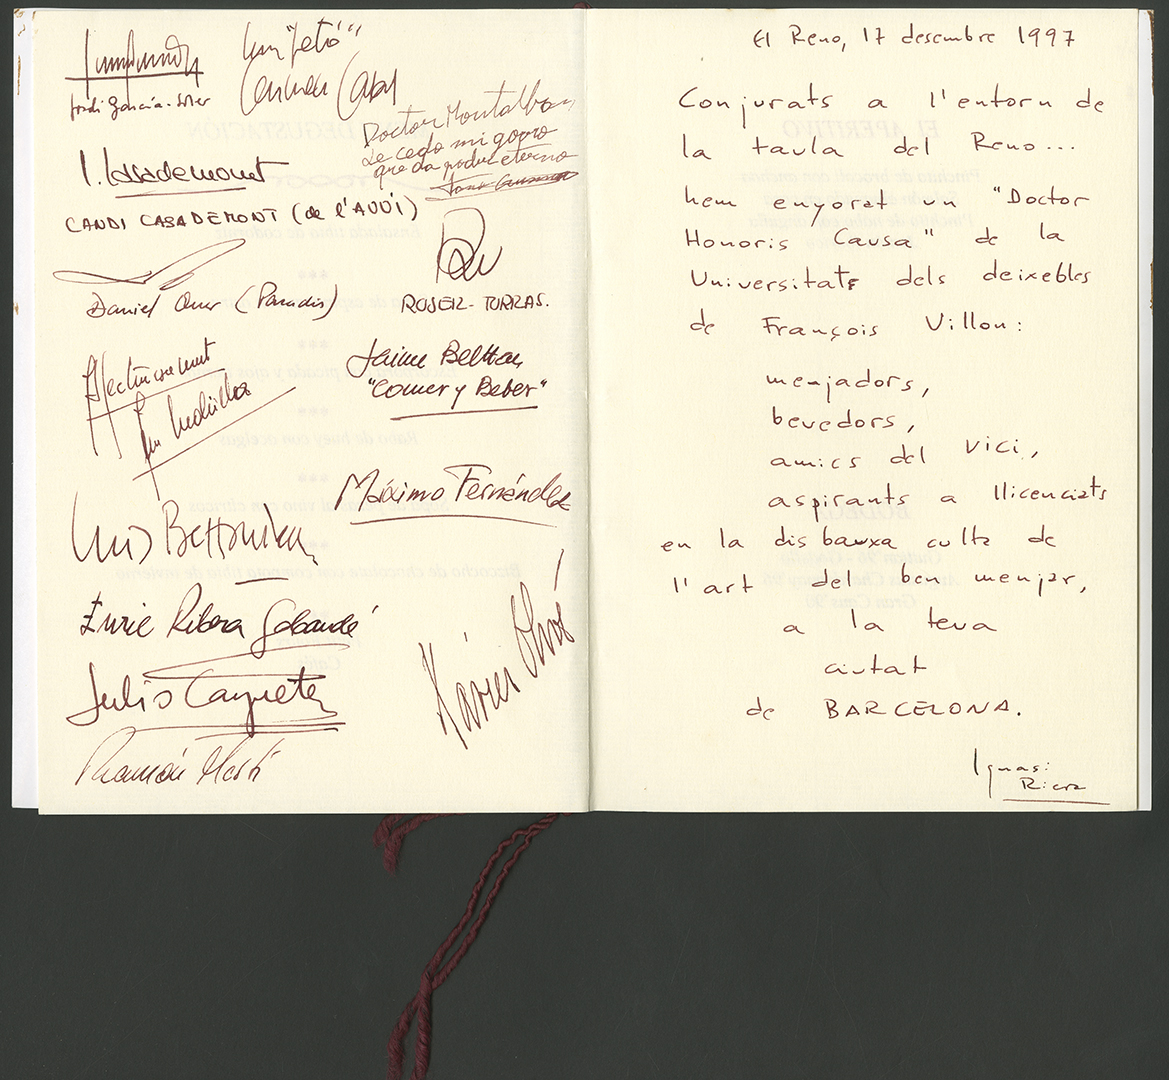 Un "petó"
Carmen Casas
Jordi García-Soler
Doctor Montalbán
le cedo mi gorro
que da poder eterno
I. Casademont
CANDI CASADEMONT (de l'AUDI)
Daniel (Paradis)
ROSER TORRAS.
Afectuosament
Jaime Beltran
"Comer y Beber"
Máximo Fernández
Luis Bettonica
Enric Ribera Gabandé
Xavier Olivé
Julio
Ramón Martí
El Reno, 17 desembre 1997
Conjurats a l'entorn de
la taula del Reno...
hem enyorat un "Doctor
Honoris Causa" de la
Universitats dels deixebles
de François Villon:
menjadors,
bevedors,
amics del vici,
aspirants a llicenciats
en la disbauxa culta de
l'art del ben menjar,
a la teva
ciutat
de BARCELONA.
Ignasi
Riera